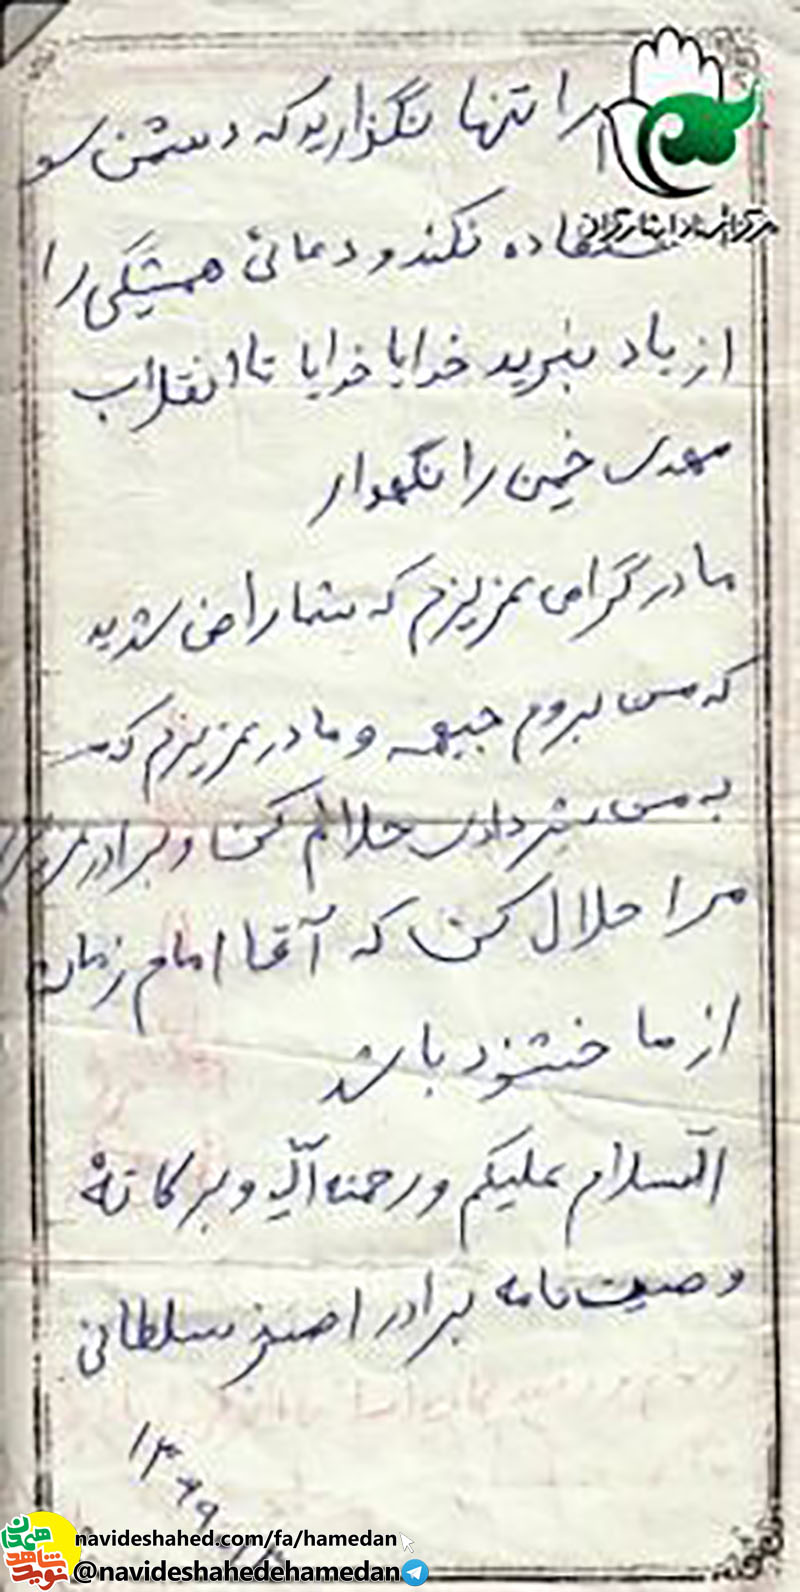 را تنها نگزارید که دشمن سو
نکند و دعائ همیشگی را
از یاد نبرید خدایا خدایا تا انقلاب
مهدی خمینی را نگهدار
مادر گرامی عزیزم که شما راضی شدید
که من بروم جبهه و مادر عزیزم که
به من شیر دادی حلالم کن و برادر
مرا حلال کن که آقا امام زمان
از ما خشنود باشد
السلام علیکم و رحمته الله و برکاته
وصیت نامه برادر اصغر سلطانی
مرکز اسناد ایثارگران
نوید شاهد همدان
navideshahed.com/fa/hamedan
@navideshahedehamedan